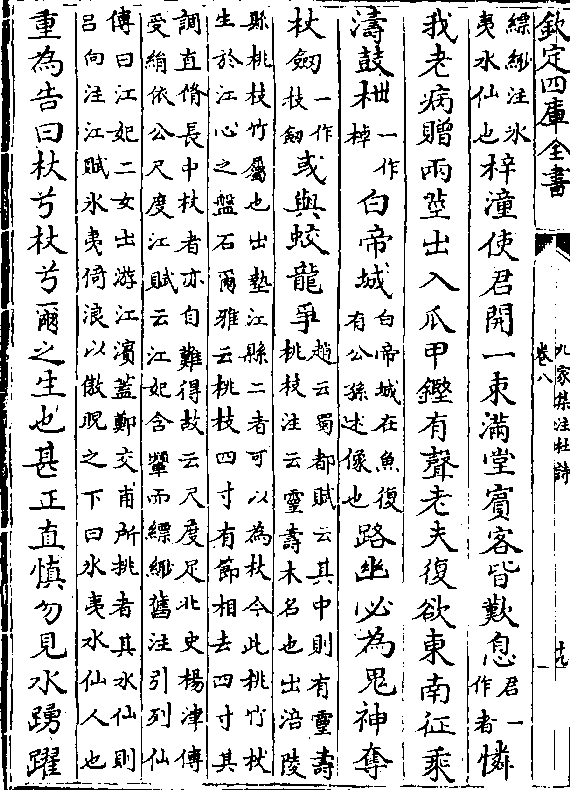 欽定四庫全書
九家集注杜詩
卷八
十九
縹緲注氷
夷水仙也
梓潼使君開一束滿堂賓客皆歎息
君一
作者
憐
我老病贈兩莖出入爪甲鏗有聲老夫復欲東南征乘
濤鼓枻
一作
棹
白帝城
白帝城在魚復
有公孫述像也
路幽必為鬼神奪
杖劒
一作
拔劒
或與蛟龍爭
趙云蜀都賦云其中則有靈壽
桃枝注云靈壽木名也出涪陵
縣桃枝竹屬也出墊江縣二者可以為杖今此桃竹杖
生於江心之盤石爾雅云桃枝四寸有節相去四寸其
調直脩長中杖者亦自難得故云尺度足北史楊津傳
受絹依公尺度江賦云江妃含嚬而縹緲舊注引列仙
傳曰江妃二女出游江濱蓋鄭交甫所挑者其水仙則
吕向注江賦氷夷倚浪以傲睨之下曰氷夷水仙人也
重為告曰杖兮杖兮爾之生也甚正直慎勿見水踴躍